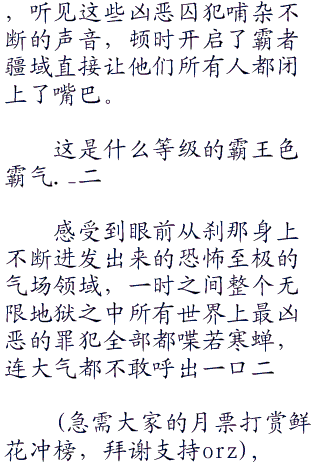 ，听见这些凶恶囚犯哺杂不
断的声音，顿时开启了霸者
疆域直接让他们所有人都闭
上了嘴巴。
这是什么等级的霸王色
霸气._二
感受到眼前从刹那身上
不断迸发出来的恐怖至极的
气场领域，一时之间整个无
限地狱之中所有世界上最凶
恶的罪犯全部都喋若寒蝉，
连大气都不敢呼出一口二
(急需大家的月票打赏鲜
花冲榜，拜谢支持orz)，